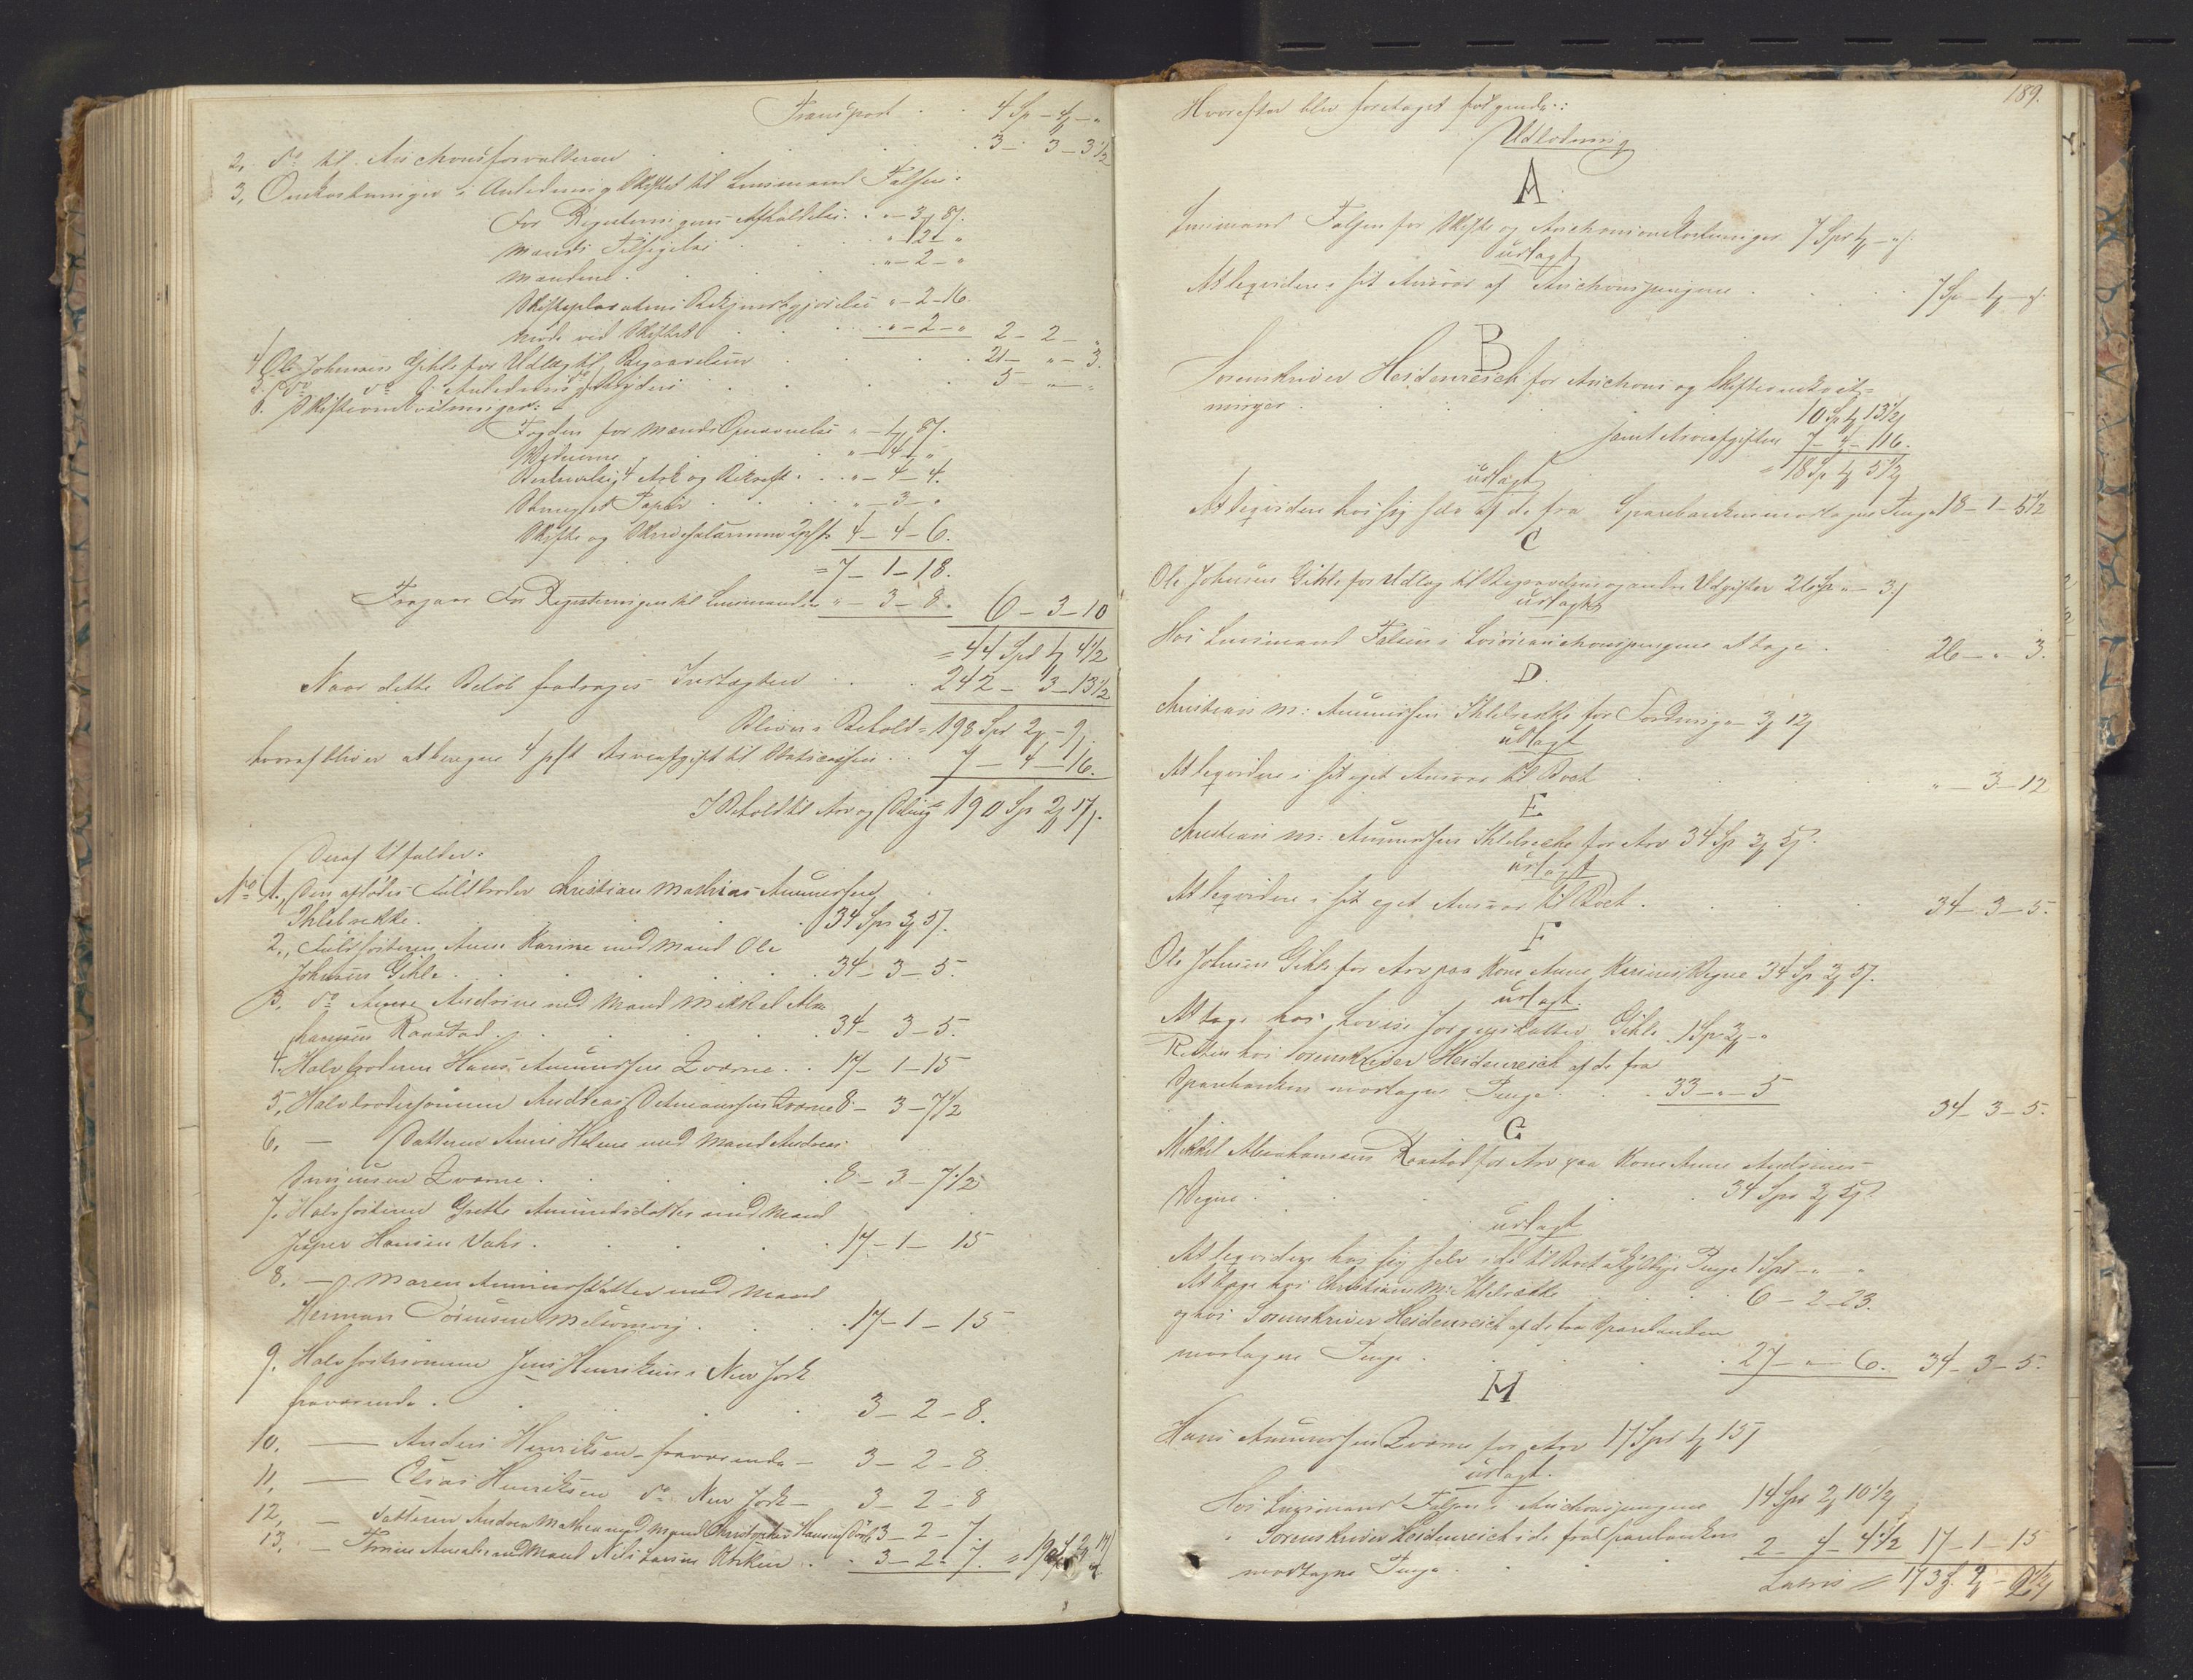 Transport . . 4 Sp - 4 - "
2, do til Auctionsforvalteren . . . 3 - 3 - 3 1/2
3, Omkostninger i Anledning Skiftet til Lensmand Falsen:
For Registeringens Afholdelse . " - 3 - 8
Mænds Tilsigelse . . " - 2 - "
Mændene . . " - 2 - "
Skifteplacatens Bekjendtgjørelse " - 2 - 16.
Møde ved Skiftet . . " - 2 - " 2 - 2 - "
4, Ole Johnsen Gihle for Udlæg til Begravelsen . . 21 - " - 3.
5, do do i Anledning . . 5 - " - "
6. Skifteomkostninger:
Fogden for Mænds Opnævnelse " - 1 - 8
. . " - 4 - "
4 Ark og . . " - 4 - 4.
Stemplet Papir . . " - 3 - "
Skifte og Skriversalarium 2 pCt 4 - 4 - 6.
= 7 - 1 - 18.
Fragaar for Registeringen til Lensmanden " - 3 - 8. 6 - 3 - 10
= 44 Spd 1 4 1/2
Naar dette Beløb fradrages Indtægten . . 242 - 3 - 13 1/2
Bliver i Behold = 198 Spd 2 - 9
hvoraf bliver at beregne 4 pCt Arveafgift til Statscassen . . 7 - 4 - 16.
I Behold til Arv og Deling = 190 Sp 2 17
Deraf tilfalder:
No 1, Den afdødes Fuldbroder Christian Mathias Amundsen
Ihlebrekke . . 34 Spd 3 5
2, Fuldsøsteren Anne Karine med Mand Ole
Johnsen Gihle . . 34 - 3 - 5.
3, do Anne Andrine med Mand Mikkel Abra-
hamsen Raastad . . 34 - 3 - 5.
4, Halvbroderen Hans Amundsen Qværne . . 17 - 1 - 15
5, Halvbrodersønnen Andreas Qværne 8 - 3 - 7 1/2
6, - Datteren Anne Helene med Mand Andreas
Qværne . . 8 - 3 - 7 1/2
7. Halvsøsteren Grethe Amundsdatter med Mand
Jesper Hansen . . 17 - 1 - 15
8. - Maren Amundsdatter med Mand
Herman Sørensen Melsomvig . . 17 - 1 - 15
9. Halvsøstersønnen Jens Henriksen i New York
fraværende . . 3 - 2 - 8.
10. — Anders Henriksen fraværende — 3 - 2 - 8
11, — Elias Henriksen do New York — 3 - 2 - 8
12, — Datteren Andrea Mathea med Mand Christopher Hansen 3 - 2 - 7.
13. — Amalie med Mand Nils Larsen . . 3 - 2 - 7.
189.
Hvorefter blev foretaget følgende:
Udlodning
A
Lensmand Falsen for Skifte og Auctionsomkostninger 7 Spd 4 - "
udlagt
At liqvidere i sit Ansvar af Auctionspengene . . 7 Sp - 4 - "
B
Sorenskriver Heidenreich for Auctions og Skifteomkost-
ninger . . 10 Sp 1 13 1/2
samt Arveafgiften 7 - 4 - 16.
= 18 Sp 1 5 1/2
udlagt
At liqvidere hos sig selv af de fra Sparebanken modtagne Penge 18 - 1 - 5 1/2
C
Ole Johnsen Gihle for Udlæg til Begravelsen og andre Udgifter 26 Sp " - 3
udlagt
Hos Lensmand Falsen i Løsøreauctionspengene at tage . . 26 - " - 3.
D.
Christian M: Amundsen Ihlebrekke for Fordring " 3 12
udlagt
At liqvidere i sit eget Ansvar til Boet . . " - 3 - 12
E
Christian M: Amundsen Ihlebrekke for Arv 34 Sp 3 5
udlagt
At liqvidere i sit eget Ansvar til Boet . . 34 - 3 - 5.
F
Ole Johnsen Gihle for Arv paa Kone Anne Karines Vegne 34 Sp 3 5
udlagt.
At tage hos Lovise Jørgensdatter Gihle 1 Spd 3 - "
Resten hos Sorenskriver Heidenreich af de fra
Sparebanken modtagne Penge . . 33 - " - 5 34 - 3 - 5.
G
Mikkel Abrahamsen Raastad for Arv paa Kone Anne Andrines
Vegne . . 34 Spd 3 5
udlagt
At liqvidere hos sig selv i de til Boet skyldige Penge 1 Spd - " - "
At tage hos Christian M: Ihlebrekke . . 6 - 2 - 23.
og hos Sorenskriver Heidenreich af de fra Sparebanken
modtagne Penge . . 27 - " - 6. 34 - 3 - 5.
H
Hans Amundsen Qværne for Arv 17 Spd 1 15
udlagt.
Hos Lensmand Falsen i Auctionspengene 14 Spd 2 10 1/2
" Sorenskriver Heidenreich i de fra Sparebanken
modtagne Penge . . 2 - 4 - 4 1/2 17 - 1 - 15
Lateris = 173